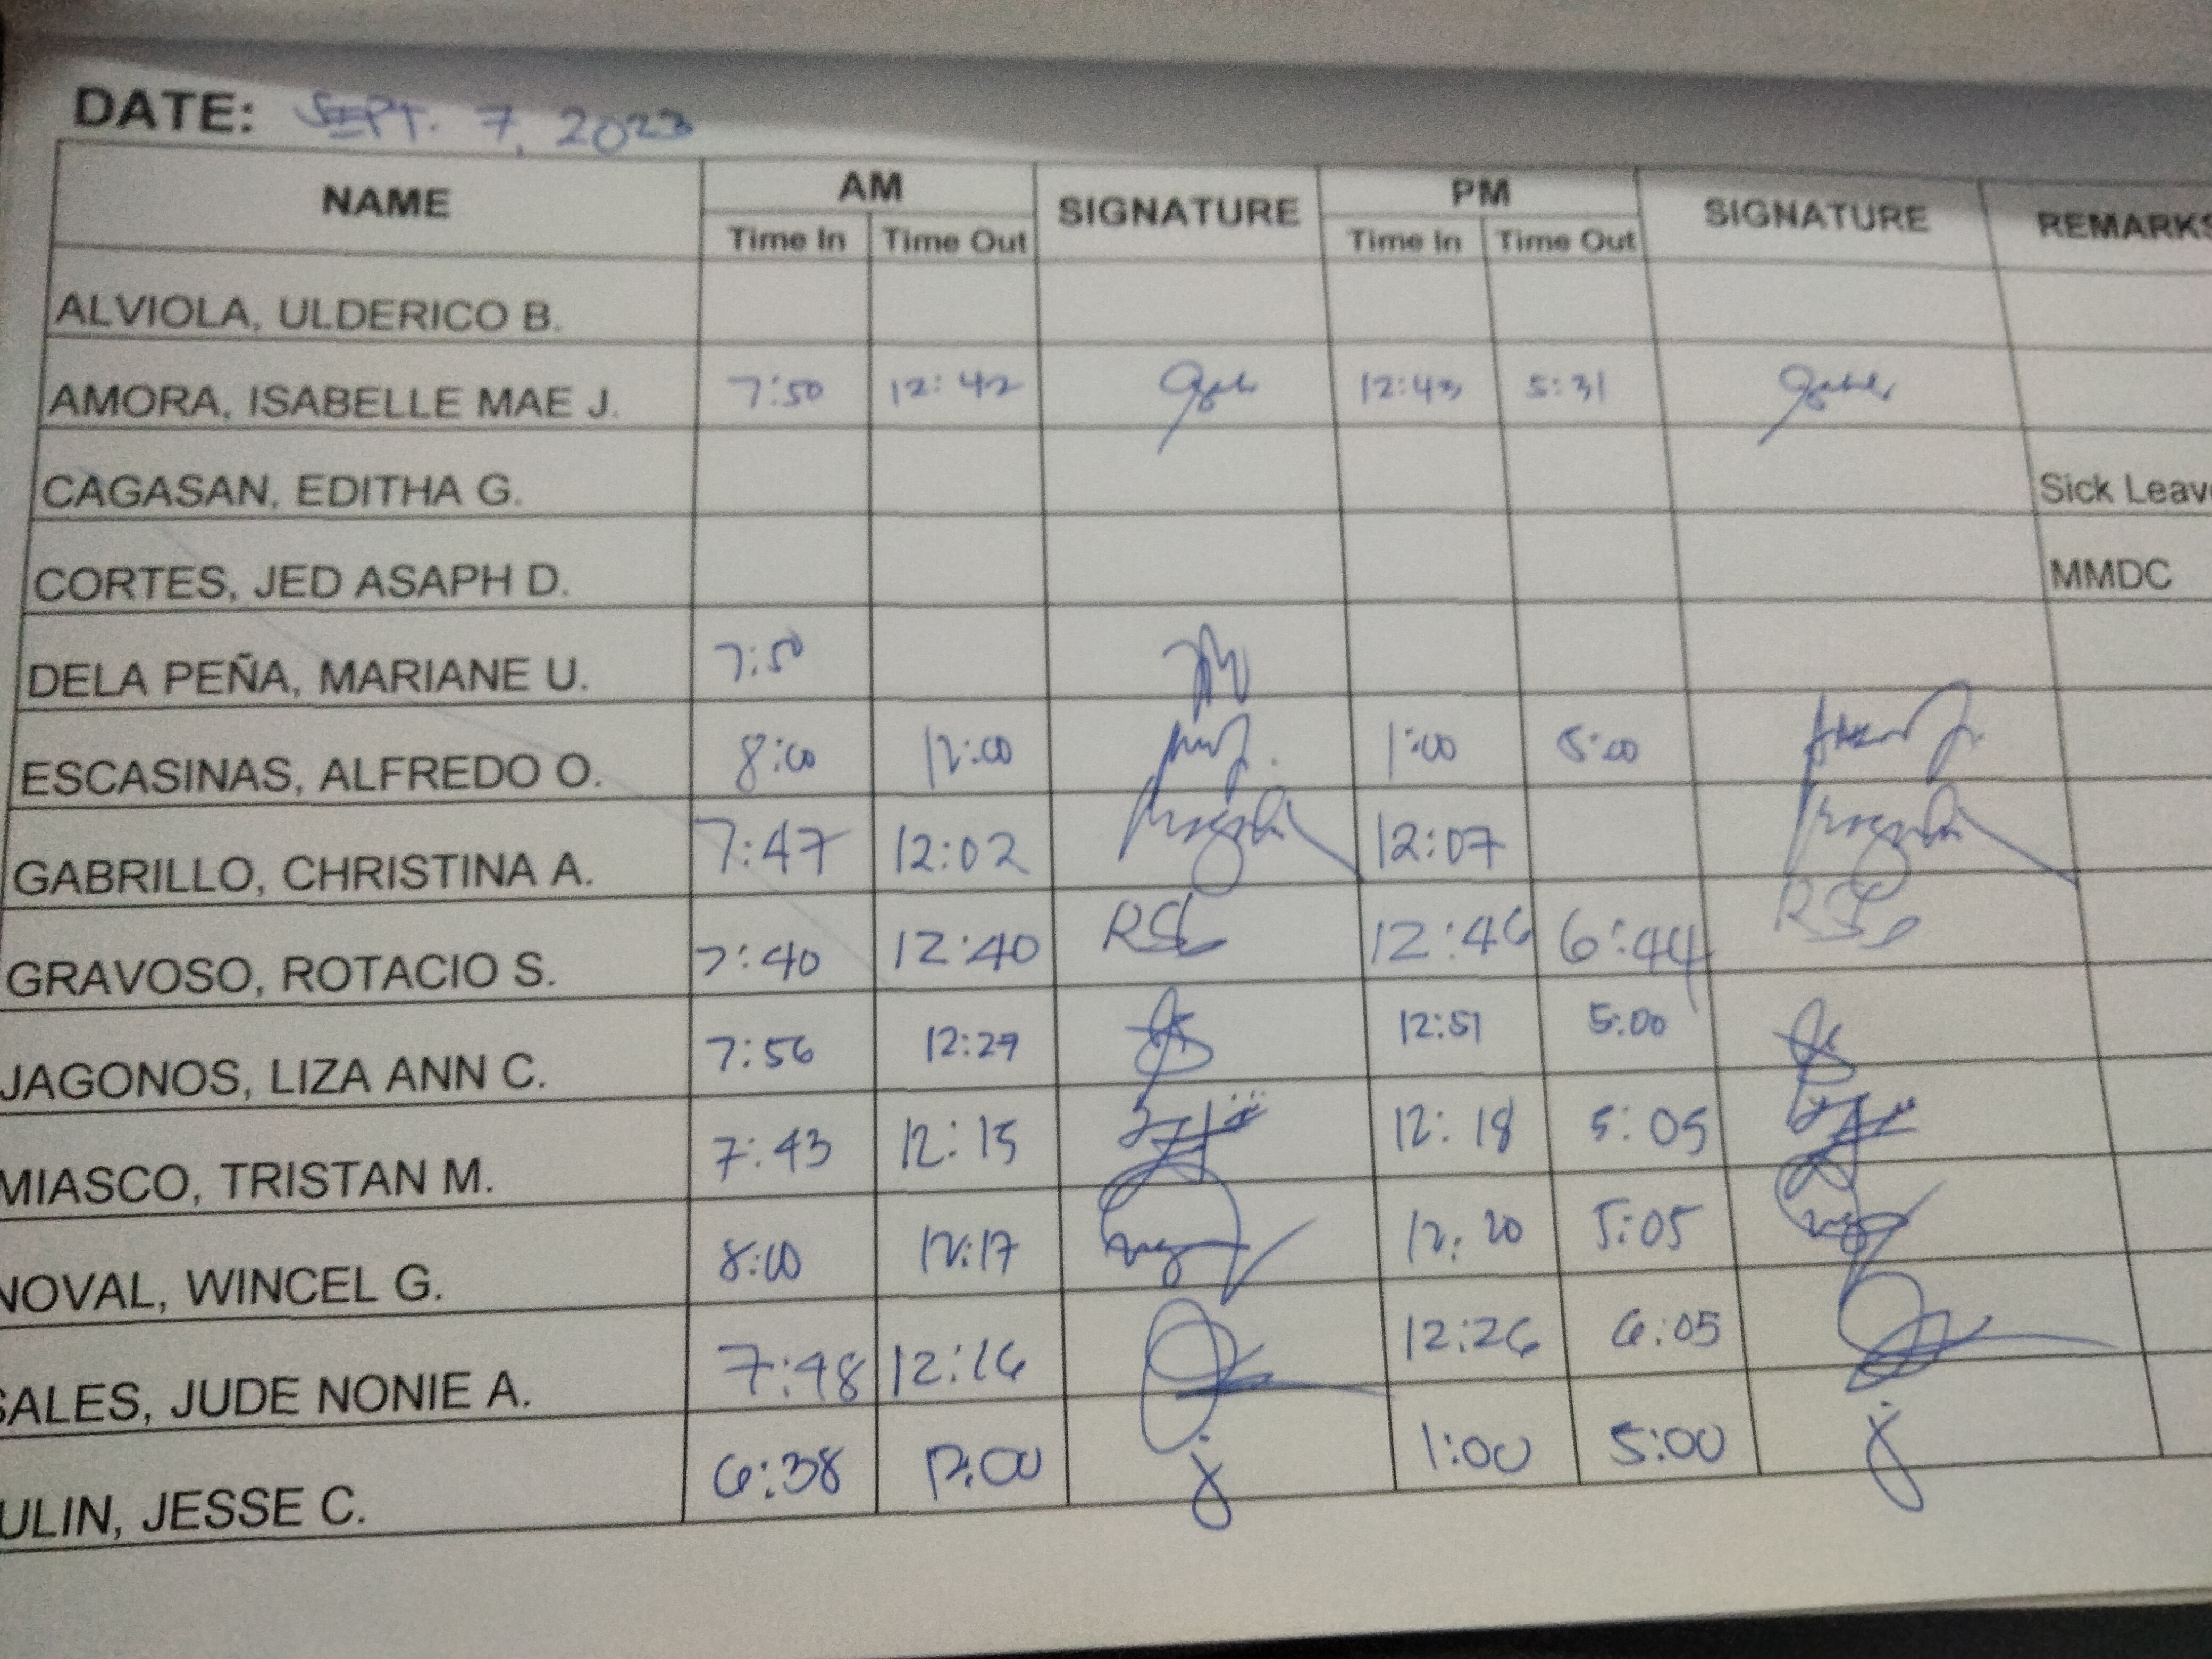 DATE: SEPT. 7, 2023
NAME AM SIGNATURE PM SIGNATURE REMARKS
Time In Time Out Time In Time Out
ALVIOLA, ULDERICO B.
AMORA, ISABELLE MAE J. 7:50 12:42 12:43 5:31
CAGASAN, EDITHA G. Sick Leav
CORTES, JED ASAPH D. MMDC
DELA PEÑA, MARIANE U. 7:50
ESCASINAS, ALFREDO O. 8:00 12:00 1:00 5:00
GABRILLO, CHRISTINA A. 7:47 12:02 12:07
GRAVOSO, ROTACIO S. 7:40 12:40 12:46 6:44
JAGONOS, LIZA ANN C. 7:56 12:29 12:51 5:00
MIASCO, TRISTAN M. 7:43 12:15 12:18 5:05
NOVAL, WINCEL G. 8:00 12:17 12:20 5:05
SALES, JUDE NONIE A. 7:48 12:16 12:26 6:05
ULIN, JESSE C. 6:38 12:00 1:00 5:00